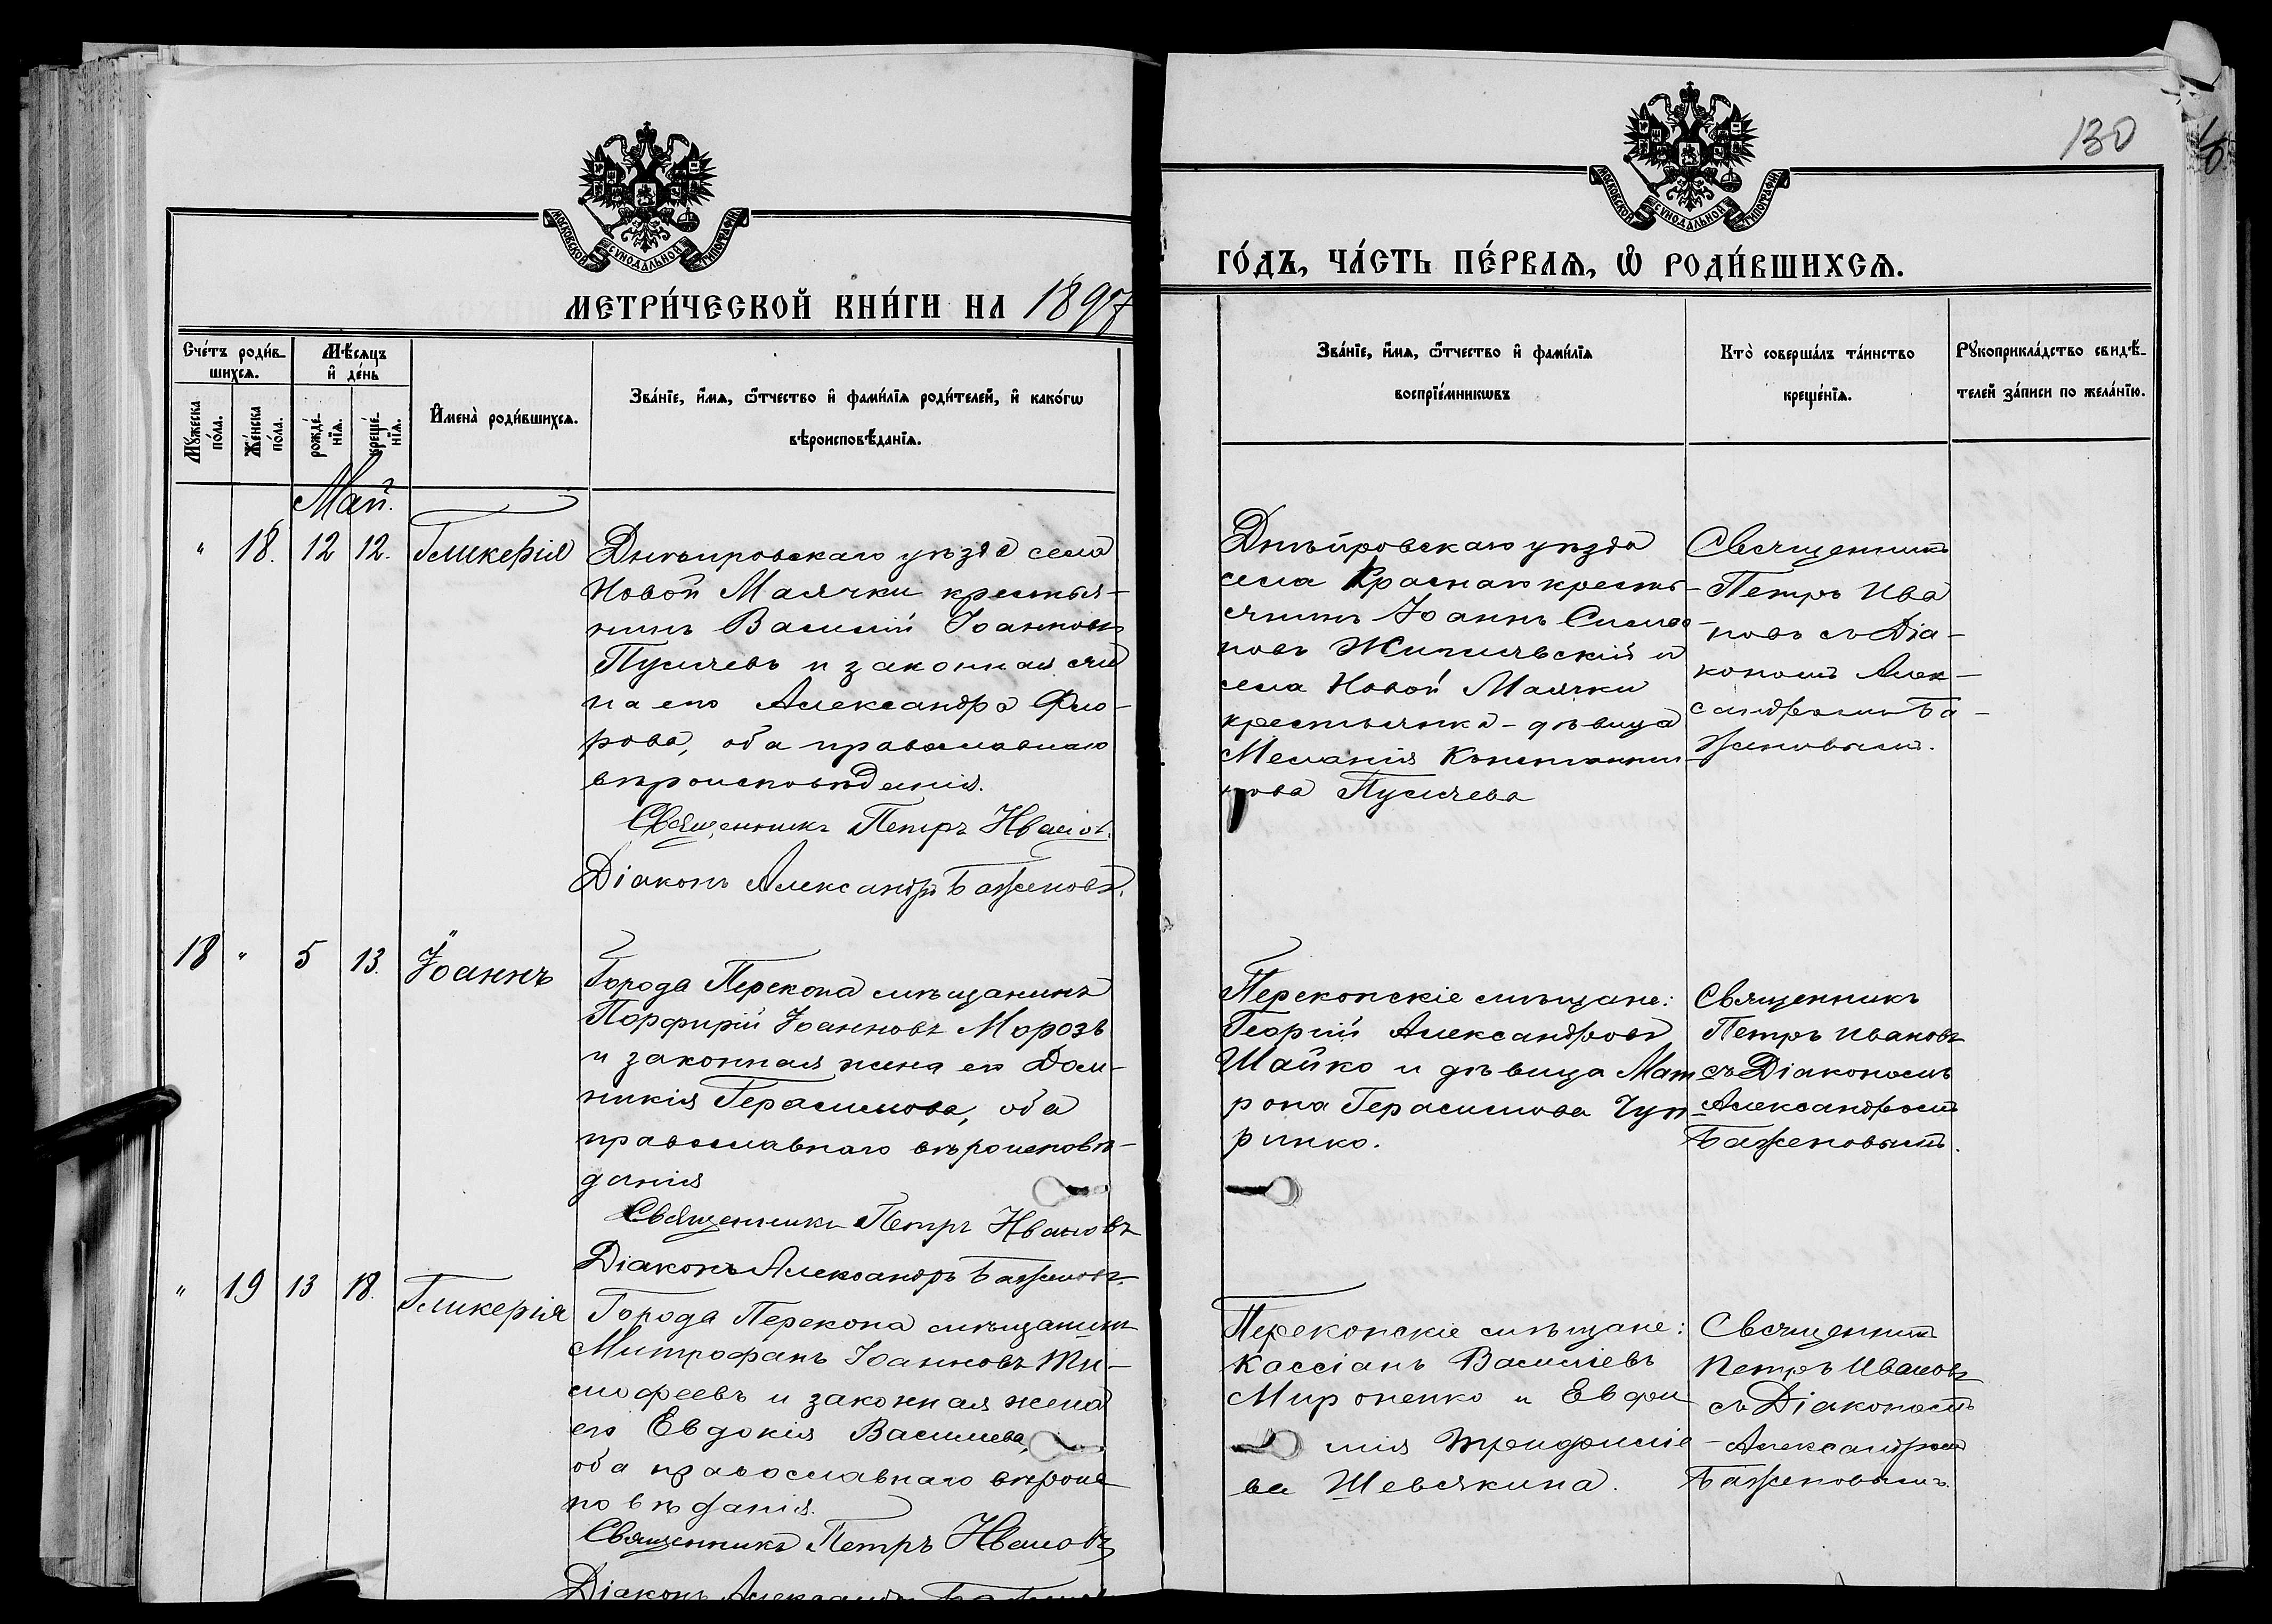 130
МОСКОВСКОЙ СѴНОДАЛЬНОЙ ТИПОГРАФІИ
МОСКОВСКОЙ СѴНОДАЛЬНОЙ ТИПОГРАФІИ
МЕТРИ́ЧЕСКОЙ КНИ́ГИ НА 1897
ГО́ДЪ, ЧА́СТЬ ПЕ́РВАѦ, Ѡ҆ РОДИ́ВШИХСѦ.
Сче́тъ роди́в-
шихсѧ.
Мѣ́сѧцъ
и҆ де́нь
Мꙋ́жеска
по́ла.
Же́нска
по́ла.
рожде́-
нїѧ.
креще́-
нїѧ.
И҆мена̀ роди́вшихсѧ.
Зва́нїе, и҆́мѧ, ѻ҆́тчество и҆ фами́лїѧ роди́телей, и҆ како́гѡ
вѣроисповѣ́данїѧ.
Зва́нїе, и҆́мѧ, ѻ҆́тчество и҆ фами́лїѧ
воспрїе́мникѡвъ
Кто̀ соверша́лъ та́инство
креще́нїѧ.
Рꙋкоприкла́дство свидѣ́-
телей за́писи по жела́нїю.
Май.
" 18. 12 12. Гликерія
Днѣпровскаго уѣзда села
Новой Маячки крестья-
нинъ Василій Іоанновъ
Пуляевъ и законная же
на его Александра Фло-
рова, оба православнаго
вѣроисповѣданія.
Священникъ Петръ Ивановъ.
Діаконъ Александръ Баженовъ.
Днѣпровскаго уѣзда
села Краснаго кресть-
янинъ Іоаннъ
новъ и
села Новой Маячки
крестьянка-дѣвица
Меланія Константи
нова Пуляева
Священникъ
Петръ Ива
новъ съ Діа-
кономъ Алек-
сандромъ Ба-
женовымъ.
18 " 5 13. Іоаннъ
Города Перекопа мѣщанинъ
Порфирій Іоанновъ Морозъ
и законная жена его Дом-
никія Герасимова, оба
православнаго вѣроисповѣ-
данія
Священникъ Петръ Ивановъ
Діаконъ Александръ Баженовъ.
Перекопскіе мѣщане:
Георгій Александровъ
Шайко и дѣвица Мат
рона Герасимова Чуп
ринко.
Священникъ
Петръ Ивановъ
съ Діакономъ
Александромъ
Баженовымъ.
" 19 13 18. Гликерія
Города Перекопа мѣщанинъ
Митрофанъ Іоанновъ Ти-
мофеевъ и законная жена
его Евдокія Василиева,
оба православнаго вѣроис
повѣданія.
Священникъ Петръ Ивановъ
Діаконъ Александръ Баженовъ
Перекопскіе мѣщане:
Кассіанъ Василіевъ
Мироненко и Евфи
мія Трифиліе
ва Шевякина.
Священникъ
Петръ Ивановъ
съ Діакономъ
Александромъ
Баженовымъ.